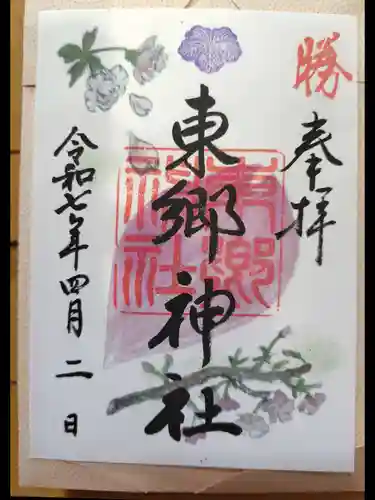 勝
奉拝
東郷神社
東郷神社
令和七年四月二日